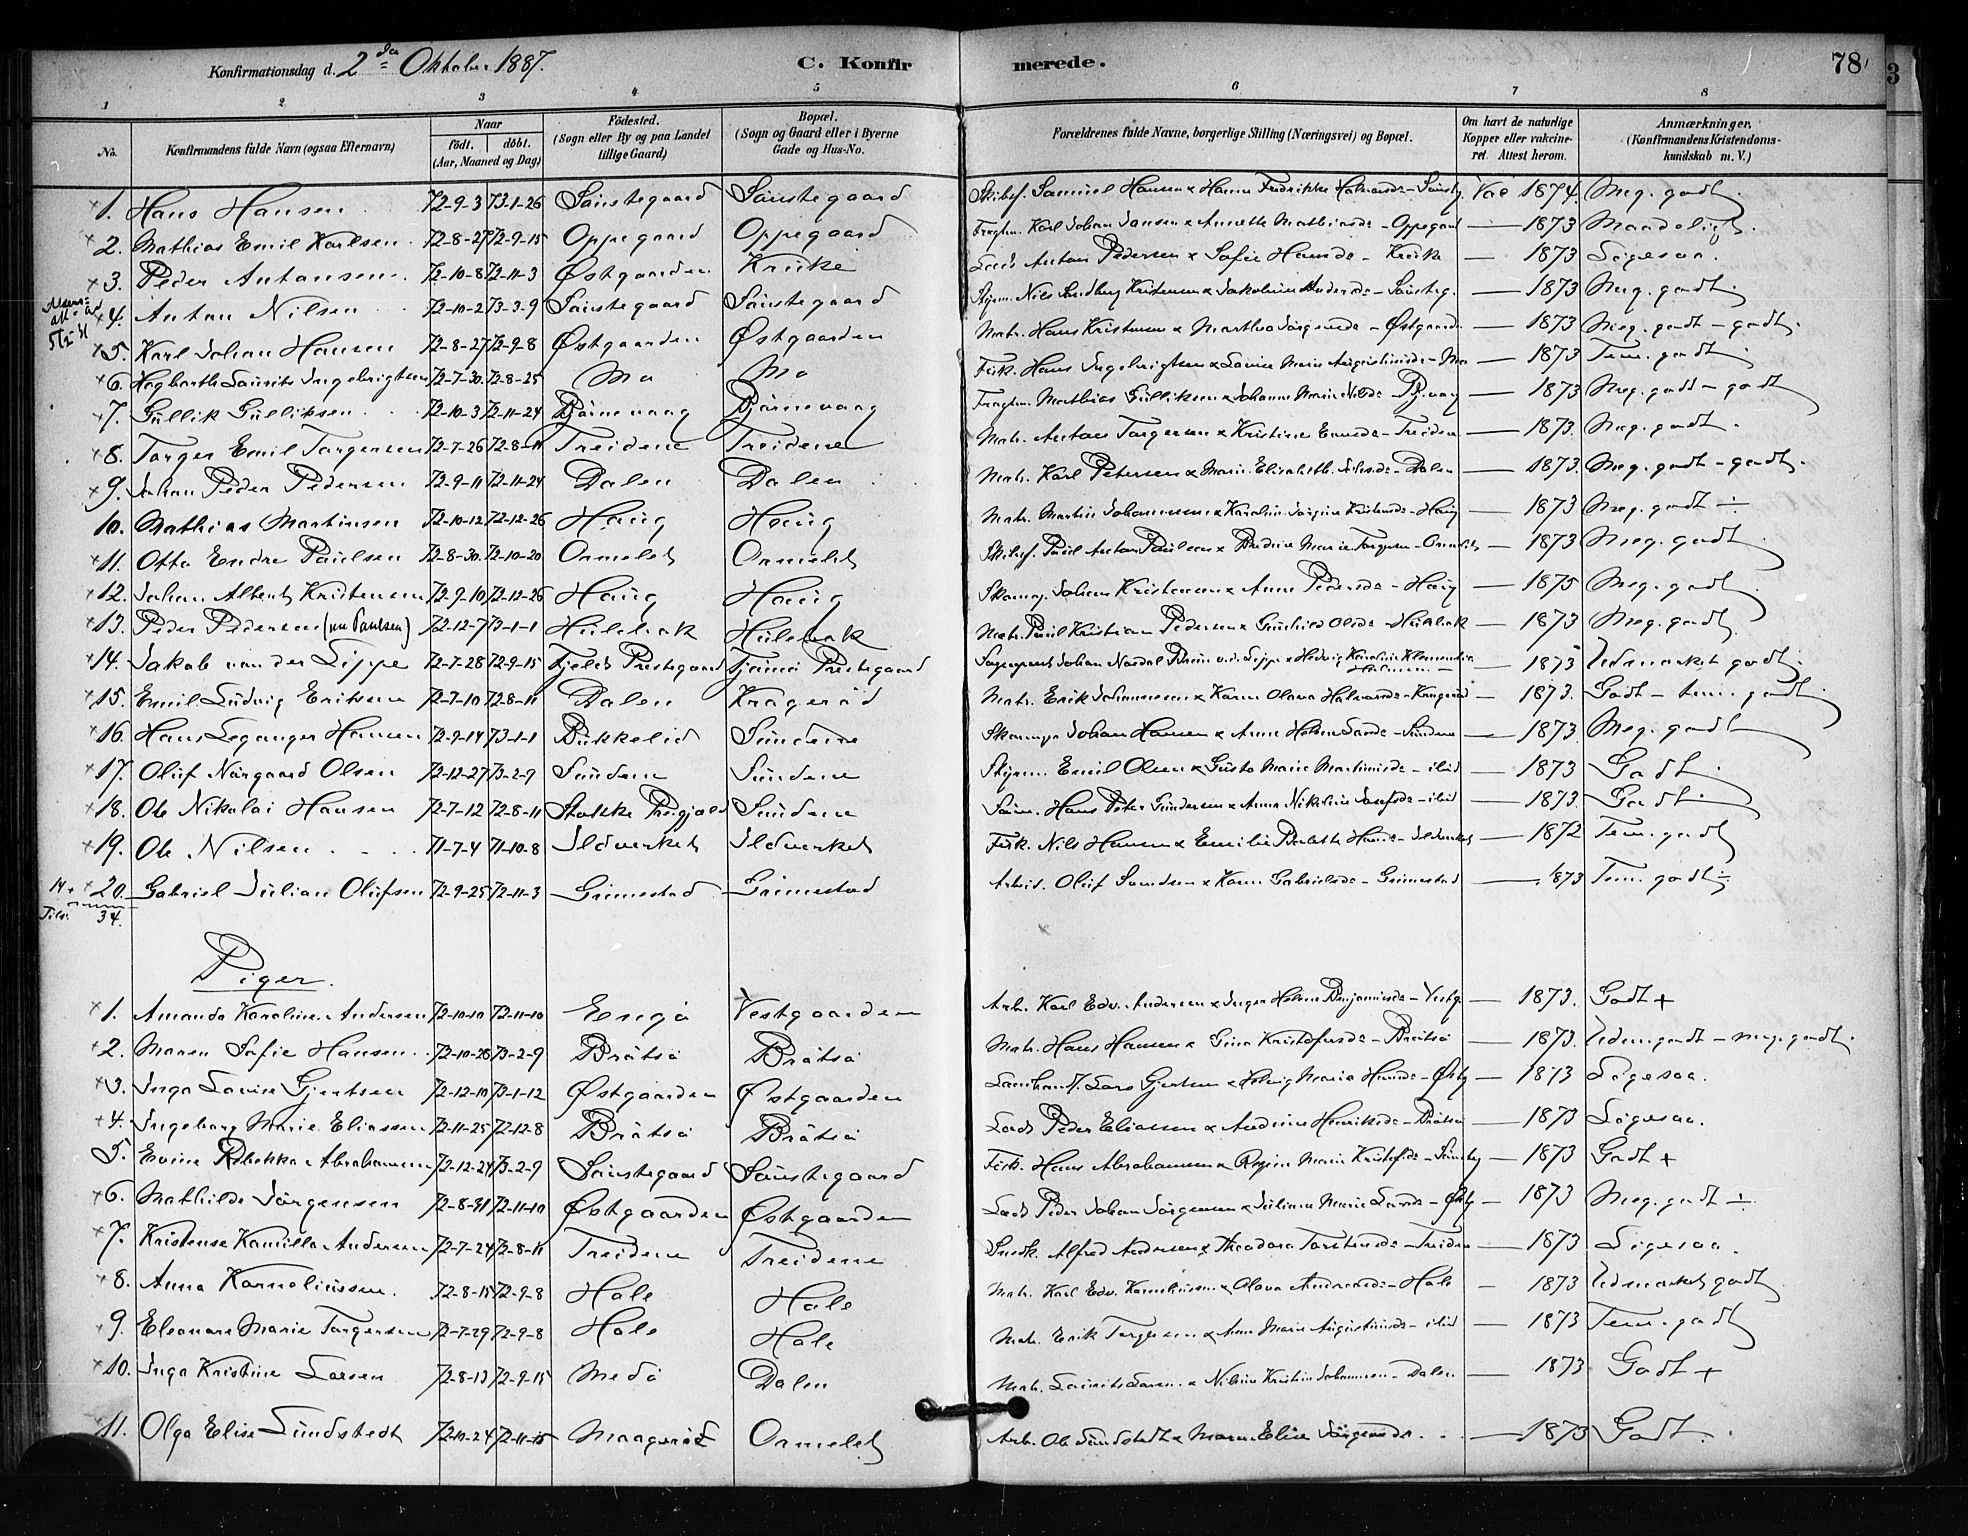 Konfirmationsdag d. 2den Oktober 1887. C. Konfirmerede. 78
1 2 3 4 5 6 7 8
No. Konfirmandens fulde Navn (ogsaa Efternavn) Naar født. døbt. (Aar, Maaned og Dag) Fødested. (Sogn eller By og paa Landet tillige Gaard) Bopæl. (Sogn og Gaard eller i Byerne Gade og Hus-No. Forældrenes fulde Navne, borgerlige Stilling (Næringsvei) og Bopæl. Om havt de naturlige Kopper eller vakcineret. Attest herom. Anmærkninger. (Konfirmandens Kristendomskundskab m. V.)
1. Hans Hansen 72-9-3 73-1-26 Sønstegaard Sønstegaard Skibsf. Samuel Hansen x Hanna Fredrikke Halvorsdr - Vac 1874. Meg. godt.
2. Mathias Emil Karlsen 72-8-27 72-9-15 Oppegaard Oppegaard Fragtm. Karl Johan Jansen x Annette Mathiasdr - Oppegaard — 1873 Maadeligt.
3. Peder Antonsen 72-10-8 72-11-3 Østgaarden Kruke Lods Anton Pedersen x Sofie Hansdr - Kruke — 1873 Ligesaa.
4. Anton Nilsen 72-10-2 73-3-9 Sønstegaard Sønstegaard Styrm. Nils Sundberg Kristensen x Jakobine Andersdr - Sønsteg. — 1873 Meg. godt.
5. Karl Johan Hansen 72-8-27 72-9-8 Østgaarden Østgaarden Matr. Hans Kristensen x Martha Jørgensdr - Østgaard. — 1873 Meg. godt - godt.
6. Hagbarth Lauritz Ingebrigtsen 72-7-30 72-8-25 Mo Mo Fisk. Hans Ingebrigtsen x Lovise Marie Augustinusdr - Mo — 1873 Tem. godt.
7. Gullik Gulliksen 72-10-3 72-11-24 Bjørnevaag Bjørnevaag Fragtm. Mathias Gulliksen x Johanne Marie Nilsdr Bj.vaag — 1873 Meg. godt - godt
8. Torger Emil Torgersen 72-7-26 72-8-11 Treidene Treidene Matr. Anton Torgersen x Kristine Enersdr - Treidene — 1873. Meg. godt.
9. Johan Peder Pedersen 72-9-11 72-11-24 Dalen Dalen Matr. Karl Petersen x Marie Elisabeth - Dalen — 1873. Meg. godt - godt.
10. Mathias Martinsen 72-10-12 72-12-26 Haug Haug Matr. Martin Johannesen x Karoline Jørgine Kristensdr - Haug — 1873 Meg. godt ÷
11. Otto Endre Paulsen 72-8-30 72-10-20 Ormelet Ormelet Skibsf. Paul Anton Paulsen x Bredine Marie Torgersen - Ormelet — 1873 Meg. godt
12. Johan Albert Kristensen 72-9-10 72-12-26 Haug Haug Skomag. Johan Kristensen x Anne Pedersdr - Haug — 1875 Meg. godt
13. Peder Pedersen (nu Paulsen) 72-12-7 73-1-1 Hulebak Hulebak Matr. Paul Kristian Pedersen x Gunhild Olsdr - Hulebak — 1873 Meg. godt.
14. Jakob von der Lippe 72-7-28 72-9-15 Fjelds Prestegaard Tjømø Prestegaard Sognepræst Johan Nordal Bruun v.d. Lippe x Hedvig Karoline Klementia — 1873 Udmærket godt.
15. Emil Ludvig Eriksen 72-7-10 72-8-11 Dalen Kragerød Matr. Erik Johannesen x Karen Olava Halvorsdr - Kragerød — 1873. Godt - tem. godt
16. Hans Leganger Hansen 72-9-14 73-1-1 Bukkelid Sundene Skomager Johan Hansen x Anne Helene - Sundene — 1873 Meg. godt
17. Oluf Nørgaard Olsen 72-12-27 73-2-9 Sundene Sundene Styrm. Emil Olsen x Gusta Marie Martinusdr - ibid — 1873 Godt.
18. Ole Nikolai Hansen 72-7-12 72-8-11 Stokke Presgjeld Sundene Søm. Hans Peter Gundersen x Anna Nikoline Josefsdr - ibid — 1873. Godt.
19. Ole Nilsen 71-7-4 71-10-8 Ildverket Ildverket Fisk. Nils Hansen x Emilie Hansdr - Ildverket — 1872 Tem. godt
20. Gabriel Julian Olufsen 72-9-25 72-11-3 Grimestad Grimestad Arbeid. Oluf x Karen Gabrielsdr - Grimestad — 1873 Tem. godt ÷
14 +
34.
Piger.
1. Amanda Karoline Andersen 72-10-10 72-11-10 Engø Vestgaarden Arb. Karl Edv. Andersen x Inger Helene Benjaminsdr - Vestg. — 1873. Godt +
2. Maren Sofie Hansen 72-10-28 73-2-9 Brøtsø Brøtsø Matr. Hans Hansen x Gina Kristofersdr - Brøtsø — 1873. Udm. godt - meg. godt.
3. Inga Lovise Gjertsen 72-12-10 73-1-12 Østgaarden Østgaarden Landhandl. Lars Gjertsen x Hedvig Maria Hansdr - Østg — 1873 Ligesaa.
4. Ingeborg Marie Eliassen 72-11-25 72-12-8 Brøtsø Brøtsø Lods Peder Eliassen x Andrine Henriksdr - Brøtsø — 1873 Ligesaa.
5. Evine Rebekka Abrahamsen 72-12-24 73-2-9 Sønstegaard Sønstegaard Fisk. Hans Abrahamsen x Regine Marie Kristofersdr - Sønsteg — 1873 Godt +
6. Mathilde Jørgensen 72-8-31 72-11-10 Østgaarden Østgaarden Lods Peder Johan Jørgensen x Juliane Marie Larsdr - Østg — 1873 Meg. godt ÷
7. Kristense Kamilla Andersen 72-7-24 72-8-11 Treidene Treidene Snedk. Alfred Andersen x Theodora Torstensdr - Treidene — 1873 Ligesaa.
8. Anna Korneliussen. 72-8-15 72-9-8 Hole Hole Matr. Karl Edv. Korneliussen x Olava Andreasdr - Hole - 1873 Udmærket godt
9. Eleonore Marie Torgersen 72-7-29 72-9-8 Hole Hole Matr. Erik Torgersen x Anne Marie Augustinusdr - ibid — 1873 Tem. godt
10. Inga Kristine Larsen 72-8-13 72-9-15 Medø Dalen Matr. Laurits Larsen x Nilsine Kristine Johannesen - Dalen 1873 Godt +
11. Olga Elise Lundstedt 72-10-24 72-11-15 Maagerød Ormelet Arb. Ole Lundstedt x Maren Elise Jørgensdr — 1873 Godt.